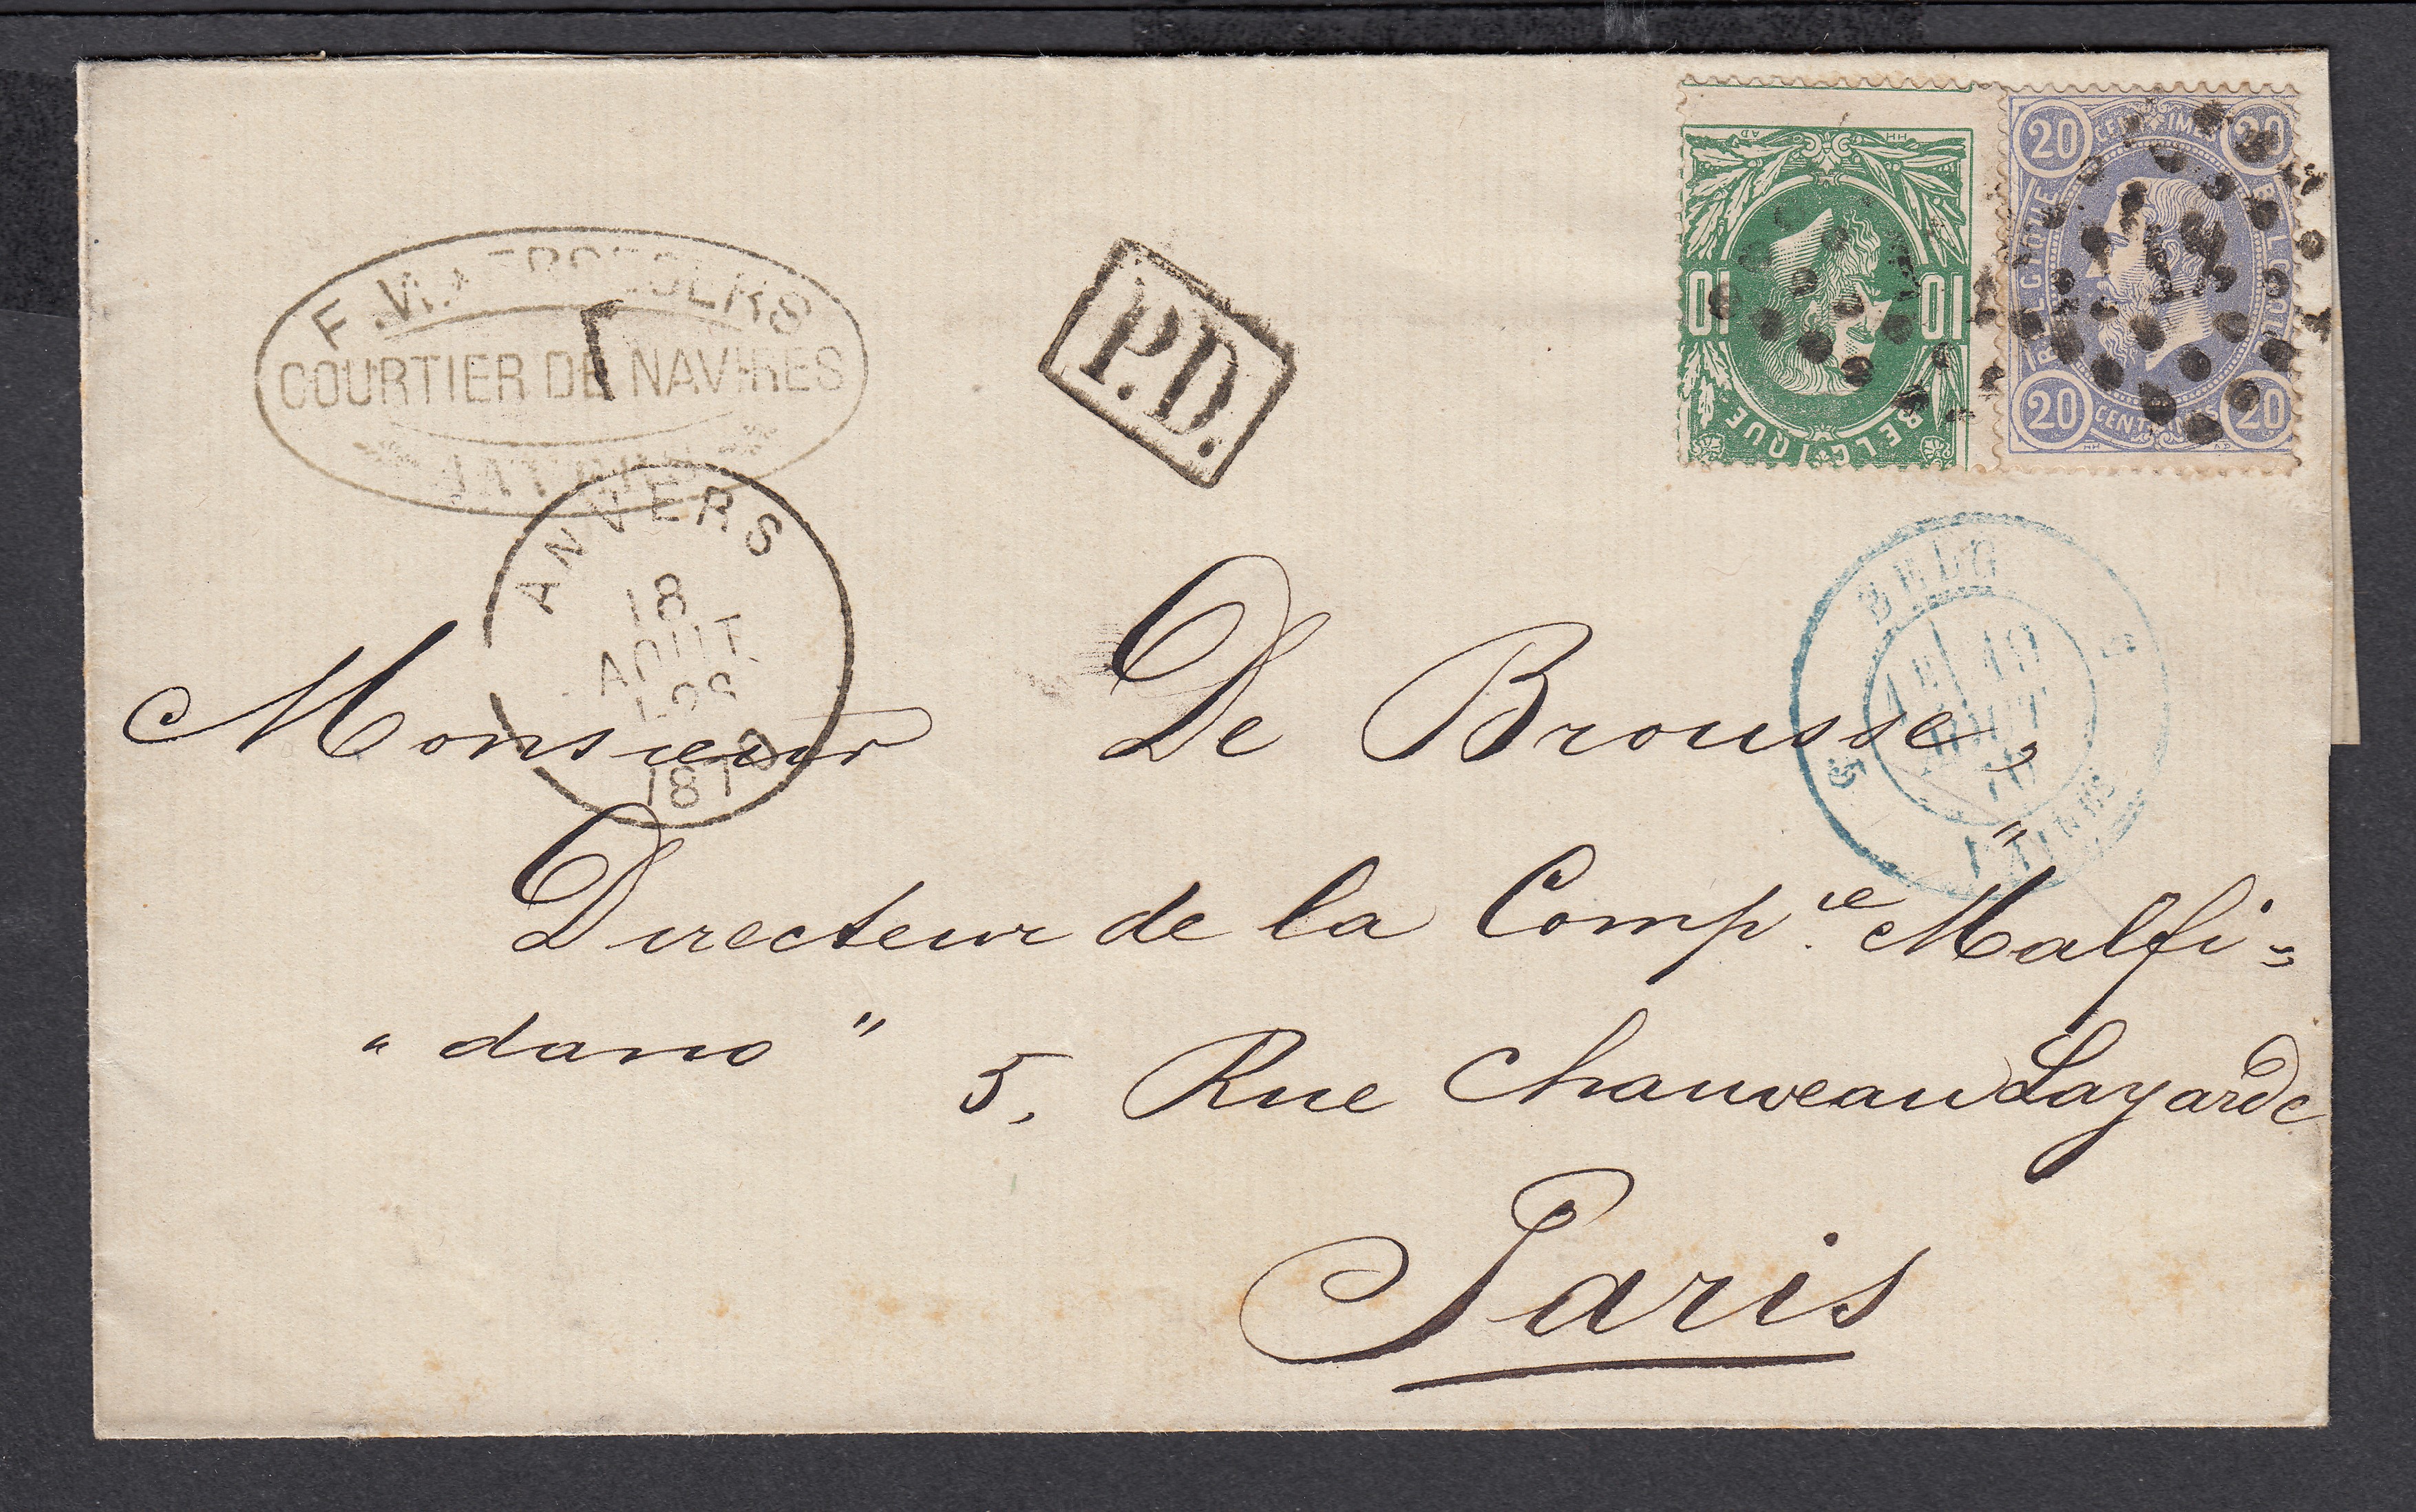 COURTIER DE NAVIRES
ANVERS
P.D.
10 10
BELGIQUE
20 CENTIMES 20
BELGIQUE BELGIQUE
20 CENTIMES 20
12
ANVERS
18
AOUT
187
BELG
5 5
19
AOUT
70
Monsieur De Brousse,
Directeur de la Comp.ie "Malfi=
"dano" 5, Rue Chauveau Lagarde
Paris